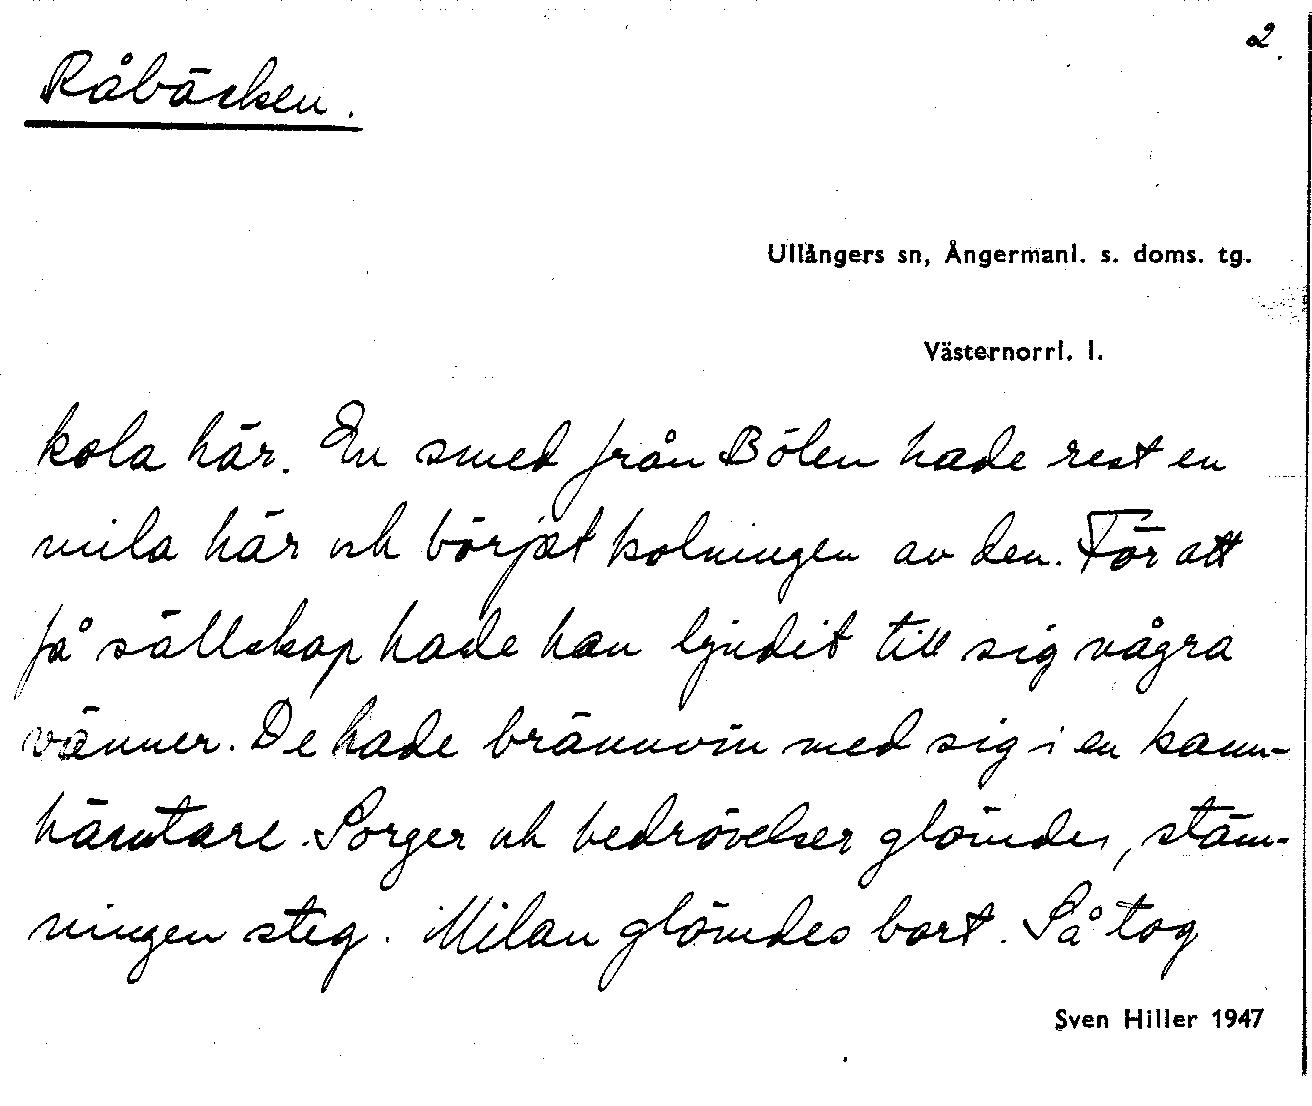 2.
Råbäcken.
Ullångers sn, Ångermanl. s. doms. tg.
Västernorrl. l.
kola här. En smed från Bölen hade rest en
mila här och börjat kolningen av den. För att
få sällskap hade han ljudit till sig några
vänner. De hade brännvin med sig i en kann-
häntare. Sorger och bedrövelser glömdes, stäm-
ningen steg. Milan glömdes bort. Så tog
Sven Hiller 1947